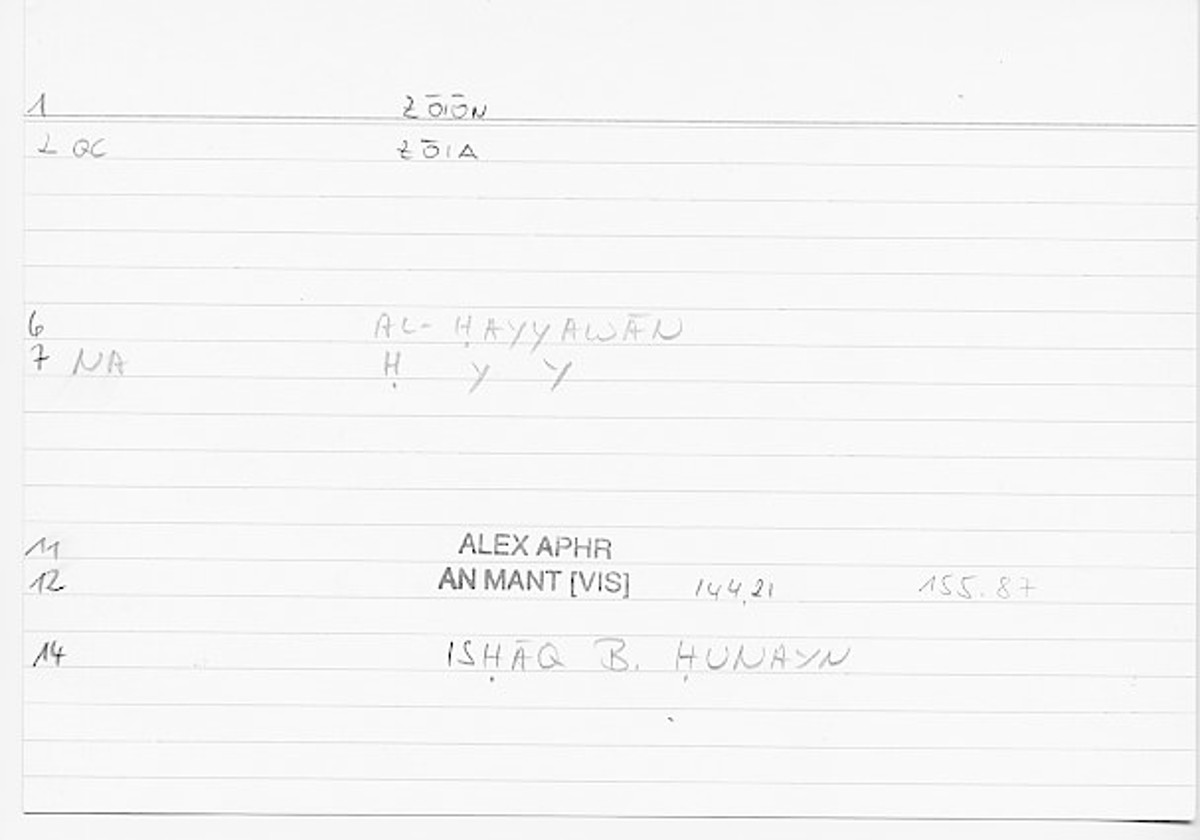 1 ZŌIŌN
2 QC ZŌIA
6 AL-ḤAYYAWĀN
7 NA Ḥ Y Y
11 ALEX APHR
12 AN MANT [VIS] 144,21 155.87
14 ISḤĀQ B. ḤUNAYN